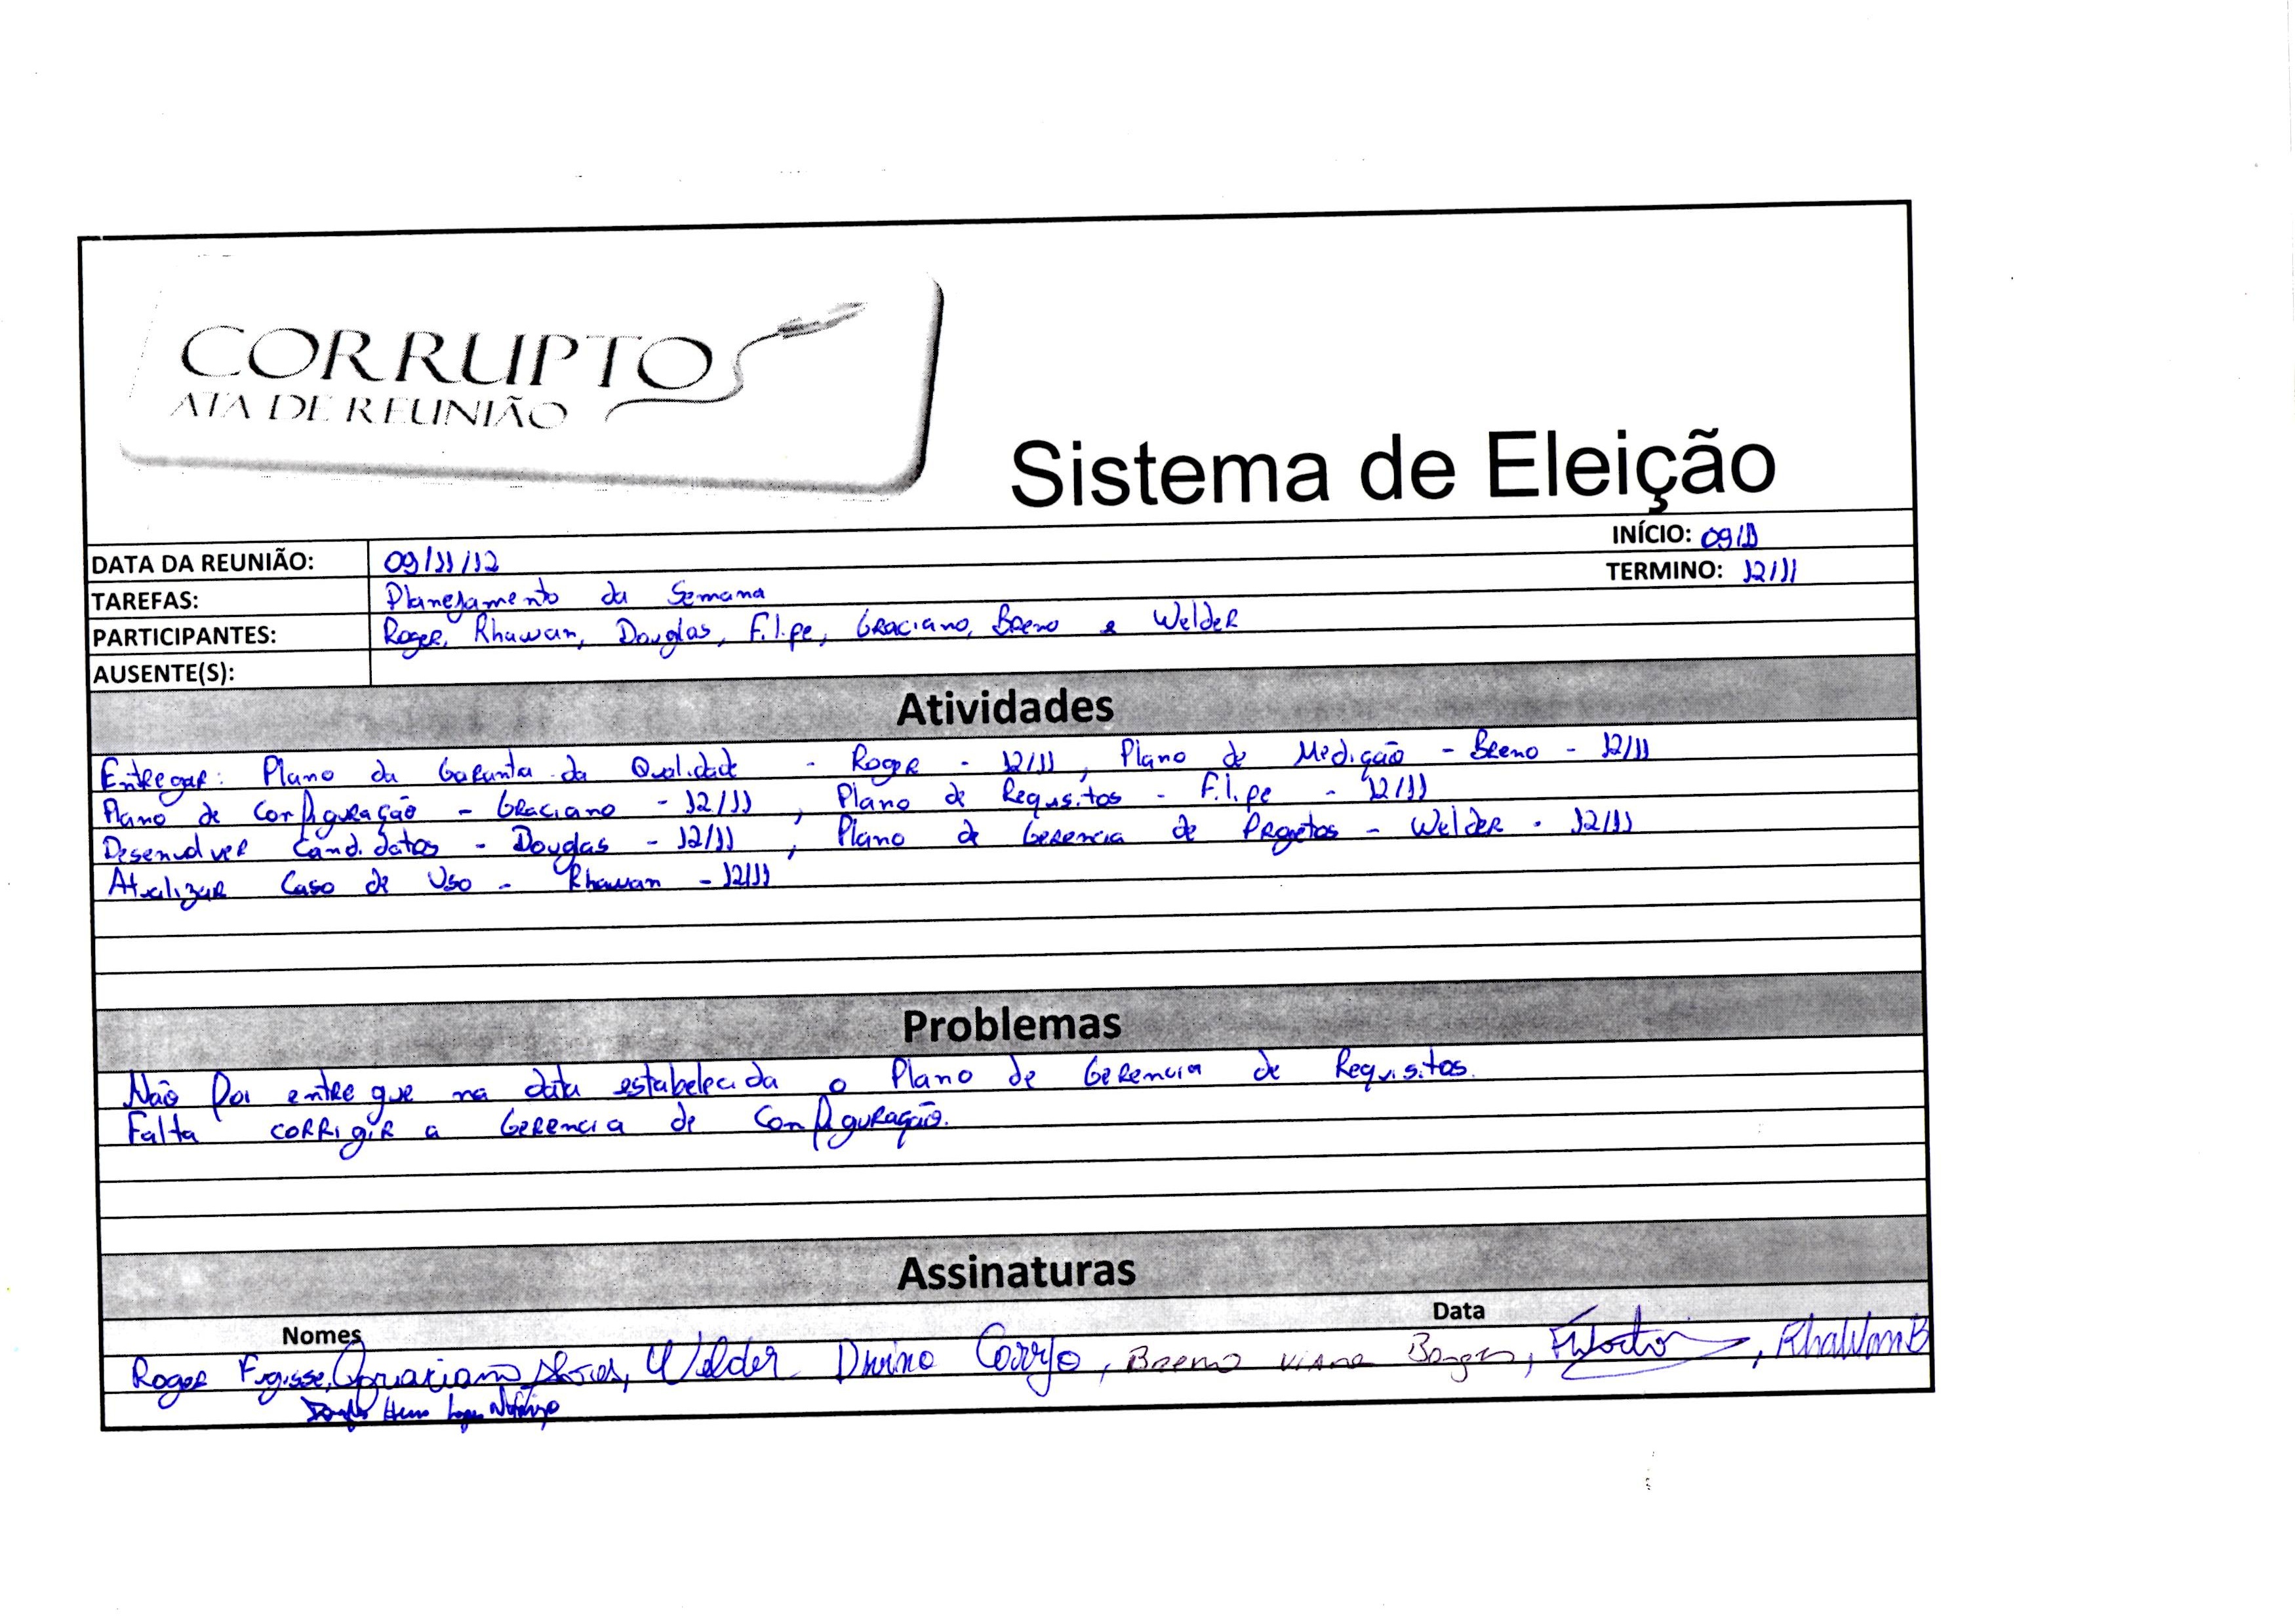 CORRUPTO
ATA DE REUNIÃO
Sistema de Eleição
DATA DA REUNIÃO: 09/11/12 INÍCIO: 09/11
TAREFAS: Planejamento da Semana TERMINO: 12/11
PARTICIPANTES: Roger, Rhawan, Douglas, Filipe, Graciano, Breno e Welder
AUSENTE(S):
Atividades
Entregar: Plano da Garantia da Qualidade - Roger - 12/11, Plano de Medição - Breno - 12/11
Plano de Configuração - Graciano - 12/11, Plano de Requisitos - Filipe - 12/11
Desenvolver Candidatos - Douglas - 12/11, Plano de Gerencia de Projetos - Welder - 12/11
Atualizar Caso de Uso - Rhawan - 12/11
Problemas
Não foi entregue na data estabelecida o Plano de Gerencia de Requisitos.
Falta corrigir a Gerencia de Configuração.
Assinaturas
Nomes Data
Roger Fugisse, Graciano, Welder Divino Corrjo, Breno Viana Borges, RhaWan B
Douglas